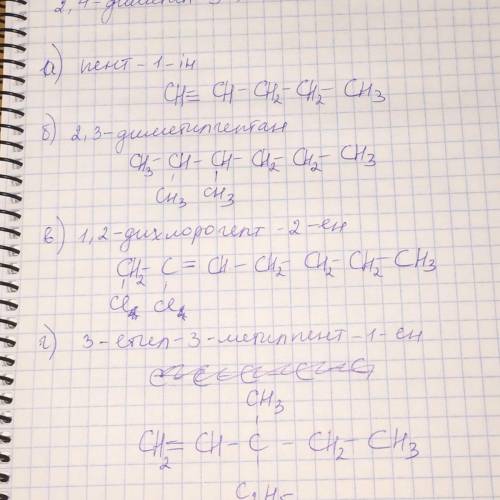 а) пент-1-ін
CH≡CH-CH₂-CH₂-CH₃
б) 2,3-диметилгептан
CH₃-CH-CH-CH₂-CH₂-CH₃
CH₃ CH₃
в) 1,2-дихлорогепт-2-ен
CH₂-C=CH-CH₂-CH₂-CH₂-CH₃
г) 3-етил-3-метилпент-1-ен
CH₃
CH₂=CH-C-CH₂-CH₃